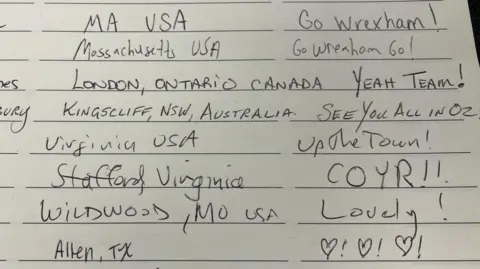 MA USA Go Wrexham!
Massachusetts USA Go Wrexham Go!
es LONDON, ONTARIO CANADA YEAH TEAM!
BURY KINGSCLIFF, NSW, AUSTRALIA. SEE YOU ALL IN OZ
Virginia USA Up The Town!
Stafford Virginia COYR!!!
WILDWOOD, MO USA Lovely!
Allen, TX ♡! ♡! ♡!